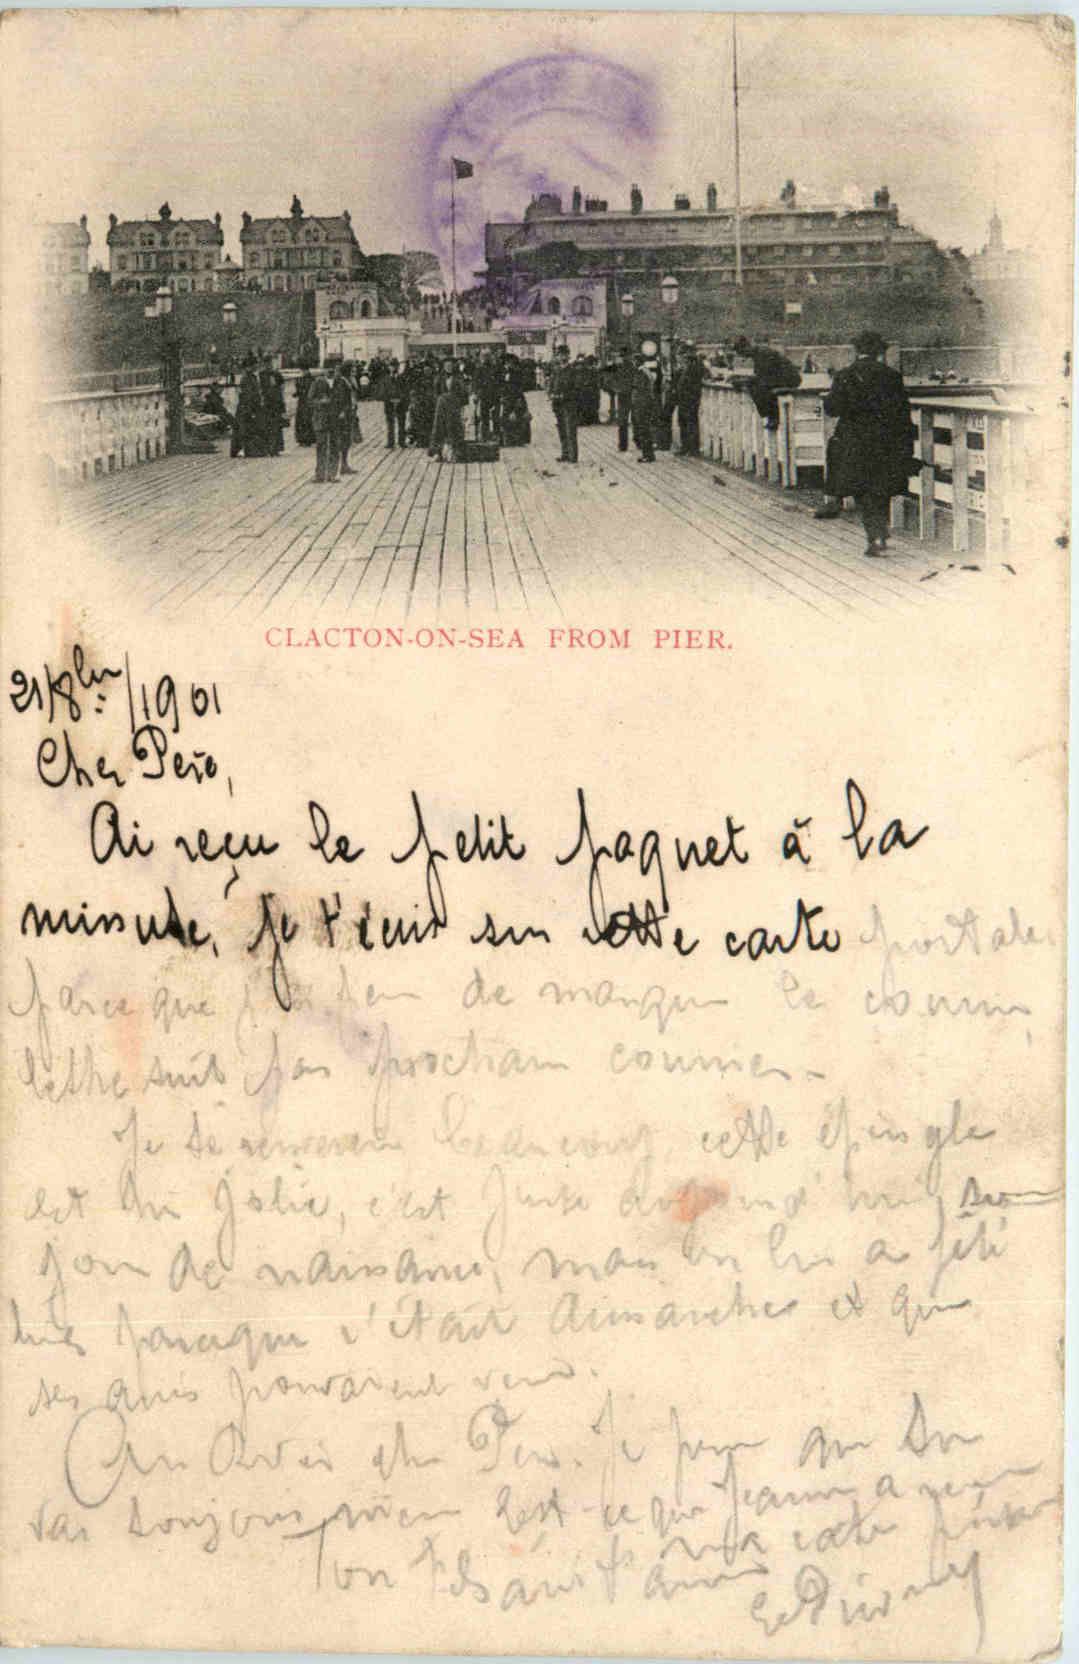 CLACTON-ON-SEA FROM PIER.
21/8bre/1901
Cher Père,
Ai reçu le petit paquet à la
minute, je t'écris sur cette carte postale
parce que j'ai peur de manquer le courrier,
lettre suit par prochain courrier.
Je te remercie beaucoup, cette épingle
est très jolie, c'est juste aujourd'hui son
jour de naissance, mais on lui a fêté
hier parceque c'était dimanche et que
ses amis pouvaient venir.
Au Revoir cher Père. Je pense que tu
vas toujours bien Est-ce que Jeanne a reçu
ma carte
Ton fils qui t'aime